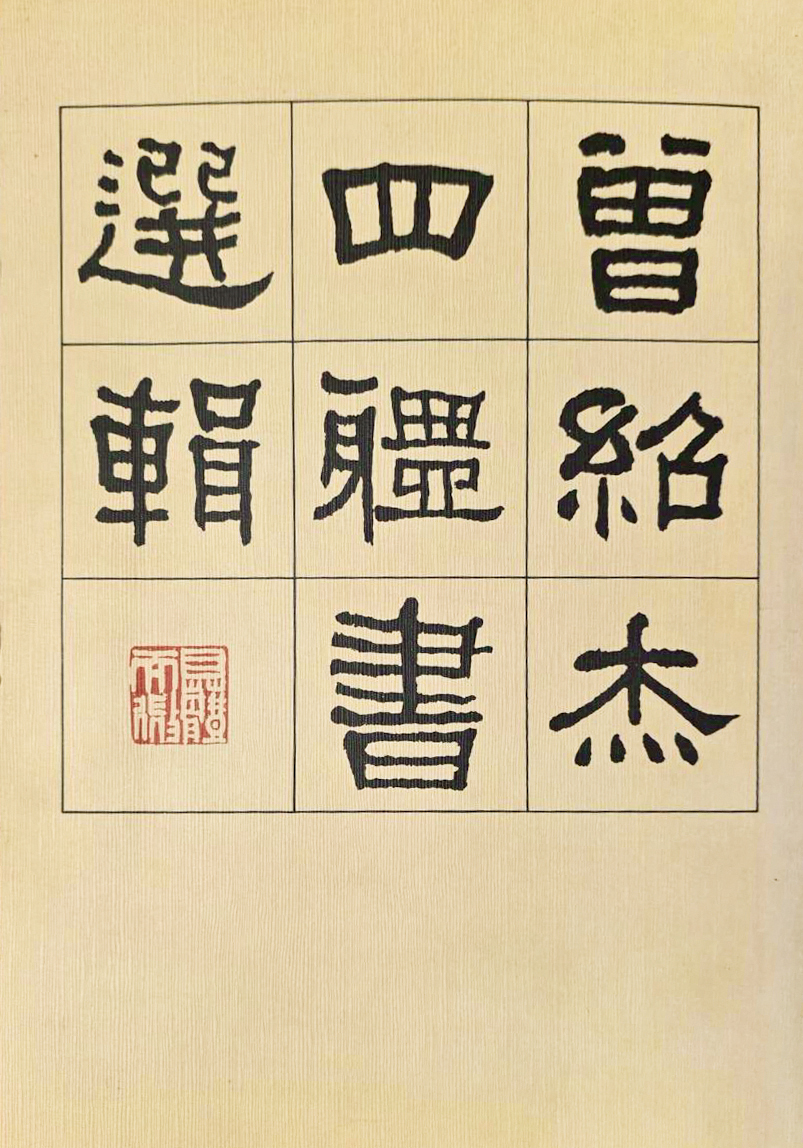 曾紹杰
四軆書
選輯